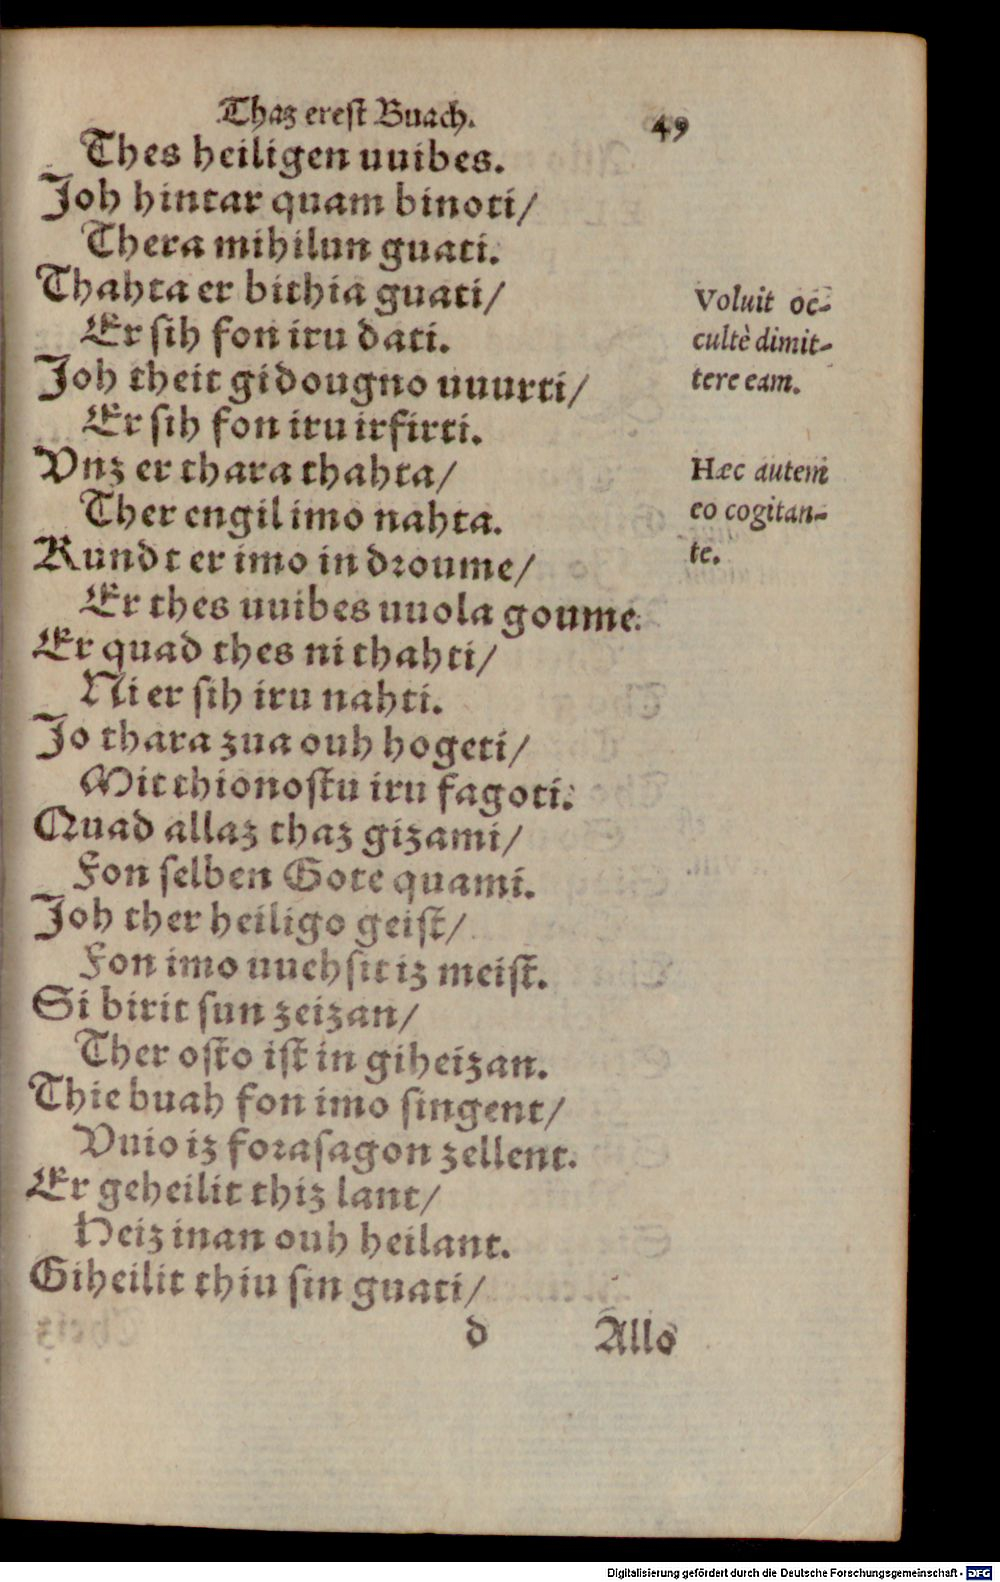 Thaz erest Buach. 49
Thes heiligen uuibes.
Joh hintar quam binoti/
Thera mihilun guati.
Thahta er bithia guati/
Er sih fon iru dati.
Joh theit gidougno uuurti/
Er sih fon iru irfirti.
Vnz er thara thahta/
Ther engil imo nahta.
Kundt er imo in droume/
Er thes uuibes uuola goume.
Er quad thes ni thahti/
Ni er sih iru nahti.
Jo thara zua ouh hogeti/
Mit thionostu iru fagoti.
Quad allaz thaz gizami/
Fon selben Gote quami.
Joh ther heiligo geist/
Fon imo uuehsit iz meist.
Si birit sun zeizan/
Ther osto ist in giheizan.
Thie buah fon imo singent/
Vuio iz forasagon zellent.
Er geheilit thiz lant/
Heiz inan ouh heilant.
Giheilit thiu sin guati/
d Allo
Voluit oc-
cultè dimit-
tere eam.
Hæc autem
eo cogitan-
te.
Digitalisierung gefördert durch die Deutsche Forschungsgemeinschaft - DFG